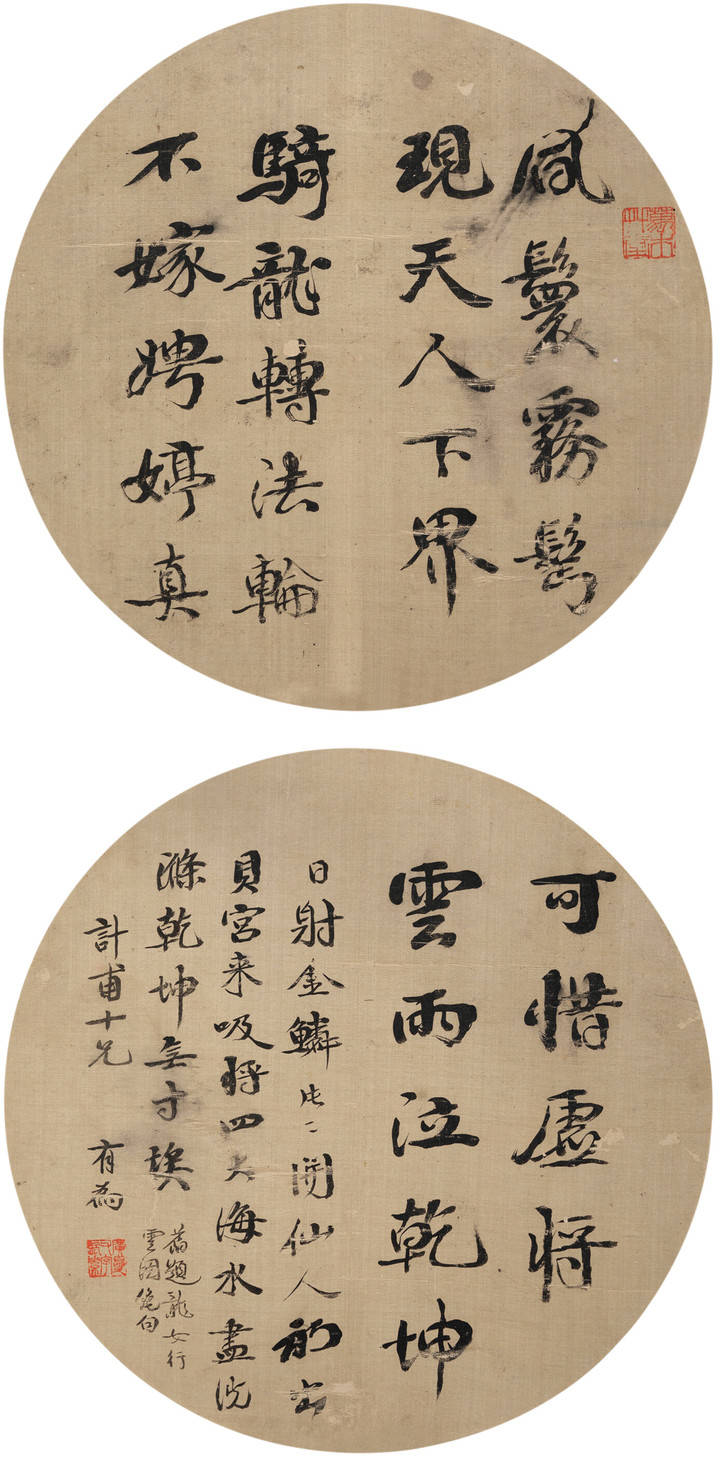 風鬟霧鬢
現天人下界
騎龍轉法輪
不嫁娉婷真
可惜虛將
雲雨泣乾坤
日射金鱗片二開仙人初出
貝宮来吸將四大海水盡洗
滌乾坤無寸埃
舊題龍女行
雲圖絕句
計甫十兄
有為